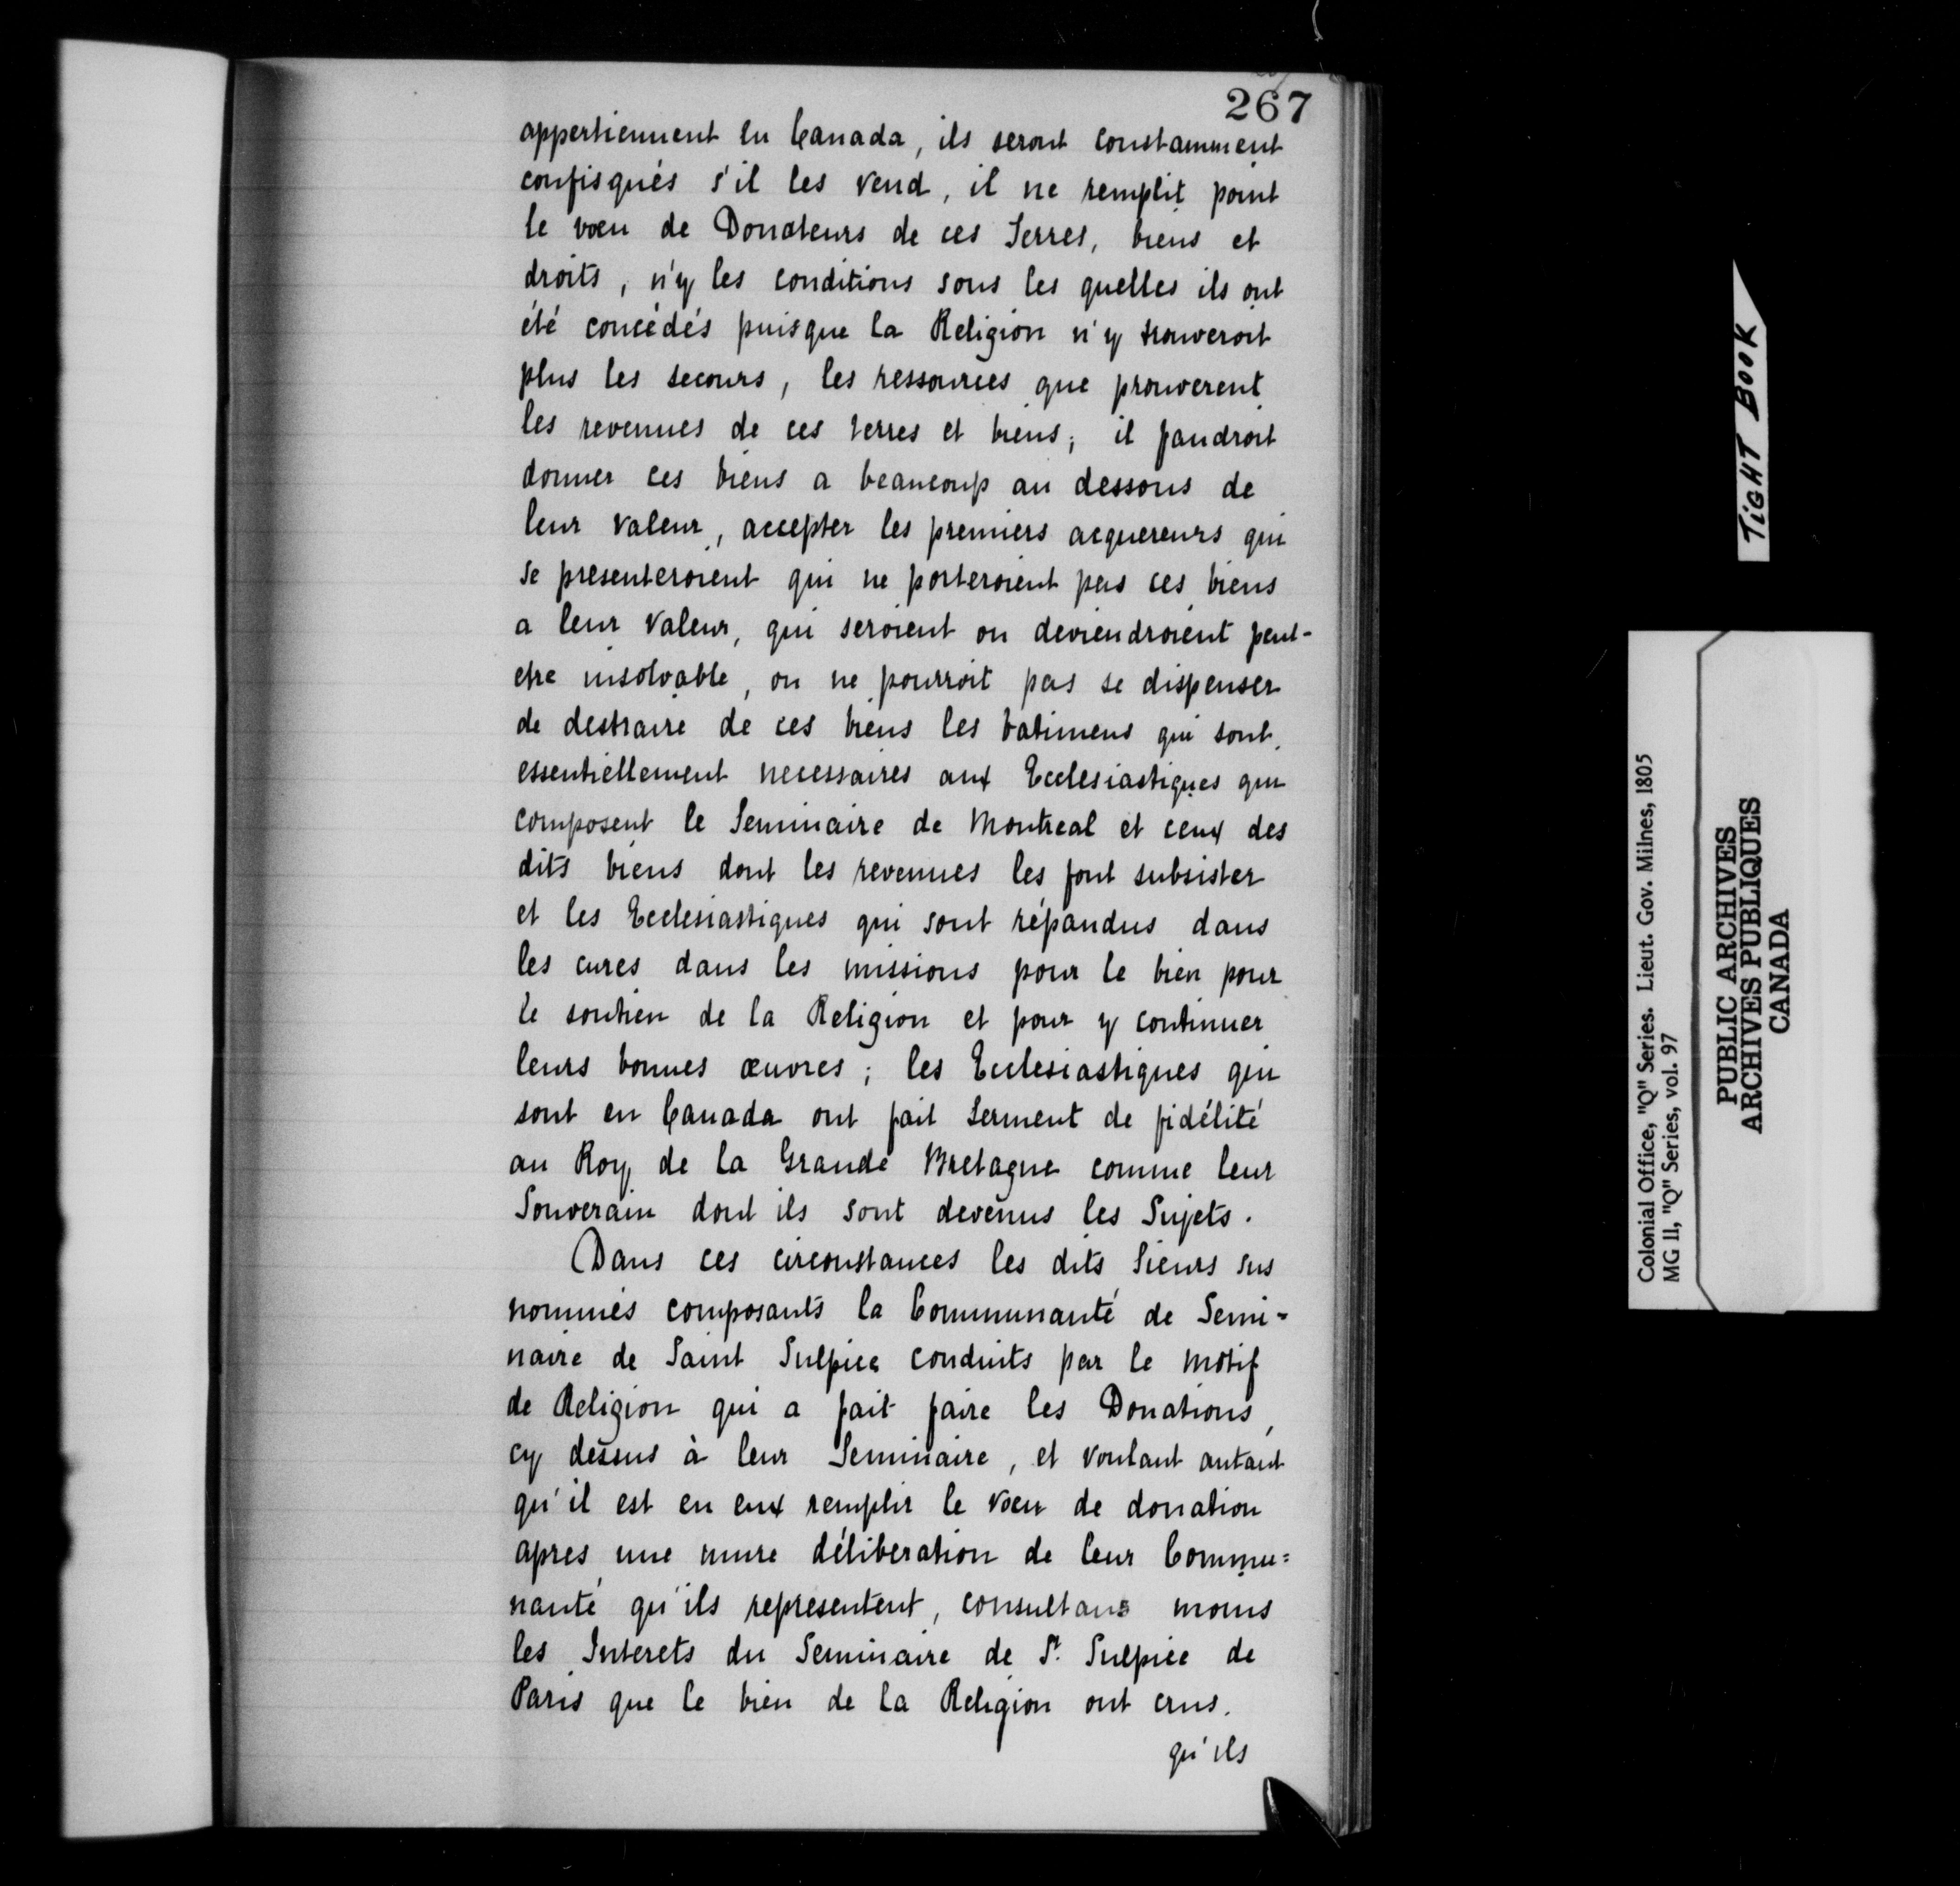 267
appertiennent en Canada, ils seront constamment
confisqués s'il les vend, il ne remplit point
le voeu de Donateurs de ces Terres, biens et
droits, n'y les conditions sous les quelles ils ont
été concédés puisque la Religion n'y trouveroit
plus les secours, les ressources que prouverent
les revenues de ces terres et biens; il faudroit
donner ces biens a beaucoup au dessous de
leur valeur, accepter les premiers acquereurs qui
se presenteroient qui ne porteroient pas ces biens
a leur valeur, qui seroient ou deviendroient peut-
etre insolvable, on ne pourroit pas se dispenser
de destraire de ces biens les batimens qui sont
essentiellement necessaires aux Ecclesiastiques qui
composent le Seminaire de Montreal et ceux des
dits biens dont les revenues les font subsister
et les Ecclesiastiques qui sont répandus dans
les cures dans les missions pour le bien pour
le soutien de la Religion et pour y continuer
leurs bonnes œuvres; les Ecclesiastiques qui
sont en Canada ont fait serment de fidélité
au Roy de la Grande Bretagne comme leur
Souverain dont ils sont devenus les Sujets.
Dans ces circonstances les dits Sieurs sus
nommés composants la Communauté de Semi=
naire de Saint Sulpice conduits par le motif
de Religion qui a fait faire les Donations,
cy dessus à leur Seminaire, et voulant autant
qu'il est en eux remplir le voeu de donation
apres une mure déliberation de leur Commu=
nauté qu'ils representent, consultans moins
les Interets du Seminaire de St. Sulpice de
Paris que le bien de la Religion ont crus.
qu'ils
TIGHT BOOK
Colonial Office, "Q" Series. Lieut. Gov. Milnes, 1805
MG 11, "Q" Series, vol. 97
PUBLIC ARCHIVES
ARCHIVES PUBLIQUES
CANADA